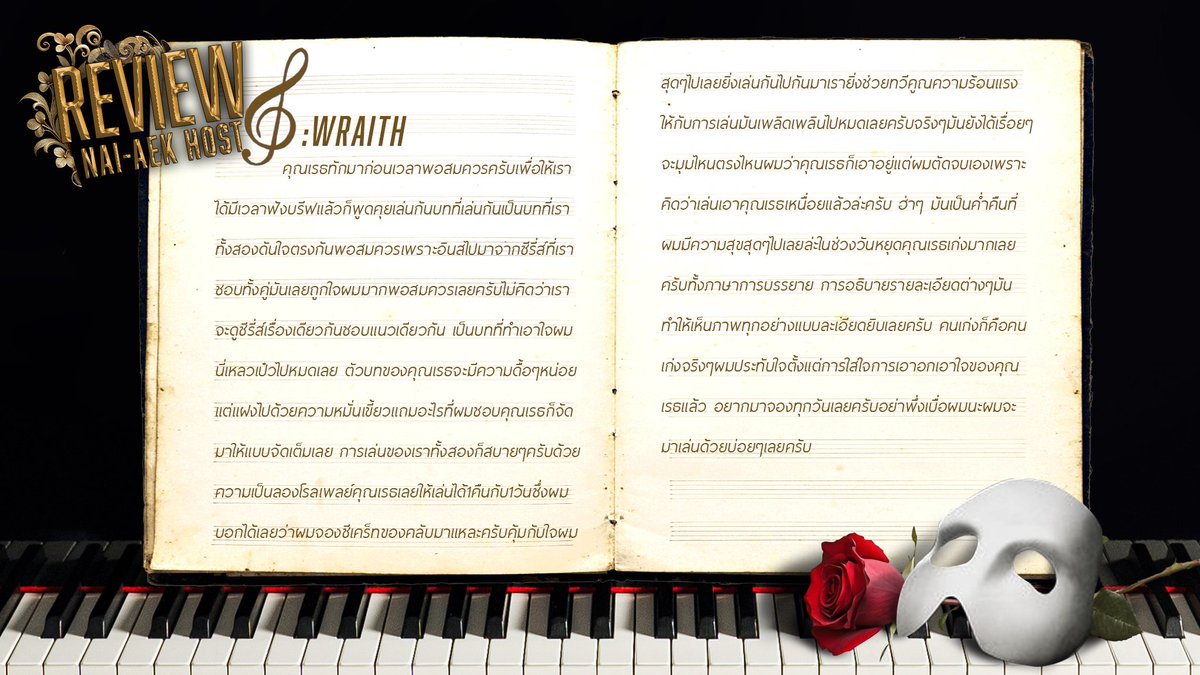 REVIEW
NAI-AEK HOST
:WRAITH
คุณเรธทักมาก่อนเวลาพอสมควรครับเพื่อให้เรา
ได้มีเวลาฟังบรีฟแล้วก็พูดคุยเล่นกันบทที่เล่นกันเป็นบทที่เรา
ทั้งสองดันใจตรงกันพอสมควรเพราะอินสไปมาจากซีรี่ส์ที่เรา
ชอบทั้งคู่มันเลยถูกใจผมมากพอสมควรเลยครับไม่คิดว่าเรา
จะดูซีรี่ส์เรื่องเดียวกันชอบแนวเดียวกัน เป็นบทที่ทำเอาใจผม
นี่เหลวเป๋วไปหมดเลย ตัวบทของคุณเรธจะมีความดื้อๆหน่อย
แต่แฝงไปด้วยความหมั่นเขี้ยวแถมอะไรที่ผมชอบคุณเรธก็จัด
มาให้แบบจัดเต็มเลย การเล่นของเราทั้งสองก็สบายๆครับด้วย
ความเป็นลองโรลเพลย์คุณเรธเลยให้เล่นได้1คืนกับ1วันซึ่งผม
บอกได้เลยว่าผมจองซีเคร็ทของคลับมาแหละครับคุ้มกับใจผม
สุดๆไปเลยยิ่งเล่นกันไปกันมาเรายิ่งช่วยทวีคูณความร้อนแรง
ให้กับการเล่นมันเพลิดเพลินไปหมดเลยครับจริงๆมันยังได้เรื่อยๆ
จะมุมไหนตรงไหนผมว่าคุณเรธก็เอาอยู่แต่ผมตัดจบเองเพราะ
คิดว่าเล่นเอาคุณเรธเหนื่อยแล้วล่ะครับ ฮ่าๆ มันเป็นค่ำคืนที่
ผมมีความสุขสุดๆไปเลยล่ะในช่วงวันหยุดคุณเรธเก่งมากเลย
ครับทั้งภาษาการบรรยาย การอธิบายรายละเอียดต่างๆมัน
ทำให้เห็นภาพทุกอย่างแบบละเอียดยิบเลยครับ คนเก่งก็คือคน
เก่งจริงๆผมประทับใจตั้งแต่การใส่ใจการเอาอกเอาใจของคุณ
เรธแล้ว อยากมาจองทุกวันเลยครับอย่าพึ่งเบื่อผมนะผมจะ
มาเล่นด้วยบ่อยๆเลยครับ